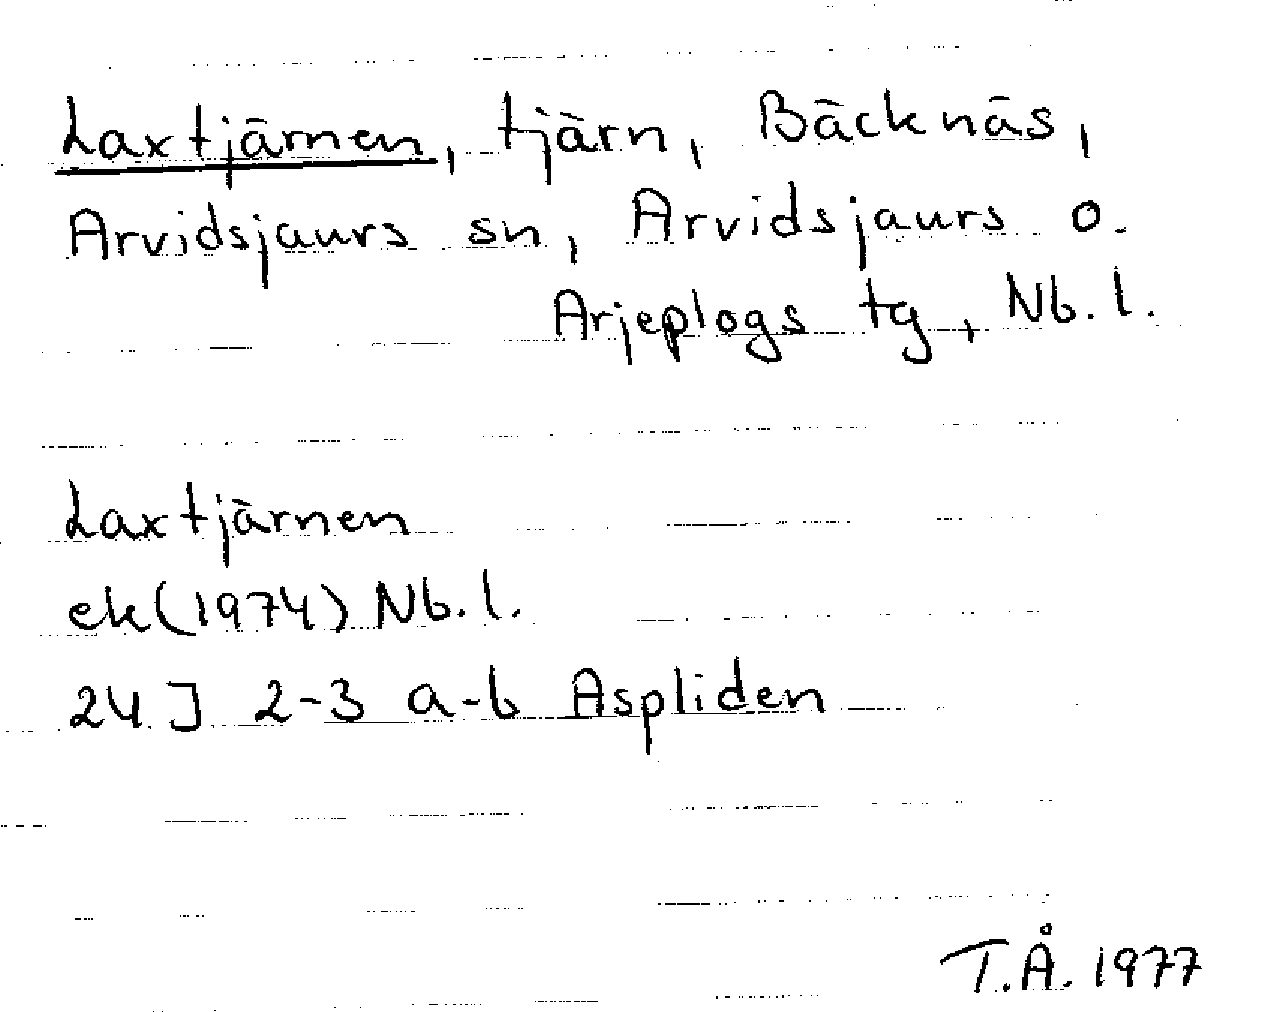 Laxtjärnen, tjärn, Bäcknäs,
Arvidsjaurs sn, Arvidsjaurs o.
Arjeplogs tg, Nb. l.
Laxtjärnen
ek (1974) Nb. l.
24 J 2-3 a-b Aspliden
T.Å. 1977